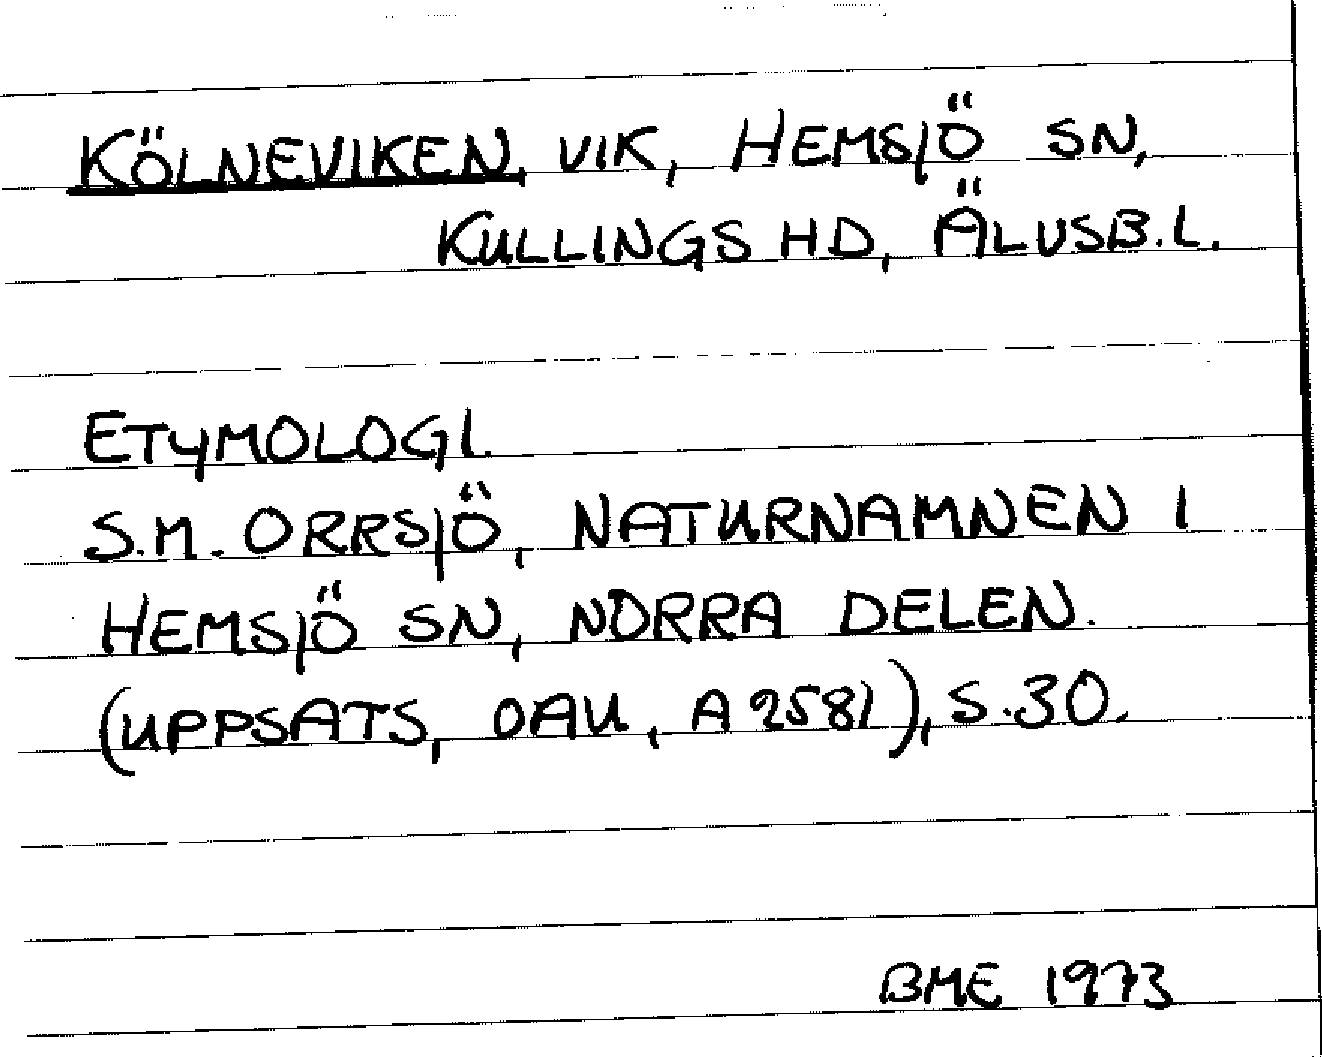 KÖLNEVIKEN, VIK, HEMSJÖ SN,
KULLINGS HD, ÄLVSB.L.
ETYMOLOGI.
S.M. ORRSJÖ, NATURNAMNEN I
HEMSJÖ SN, NORRA DELEN.
(UPPSATS, OAU, A 2581), S.30.
BME 1973